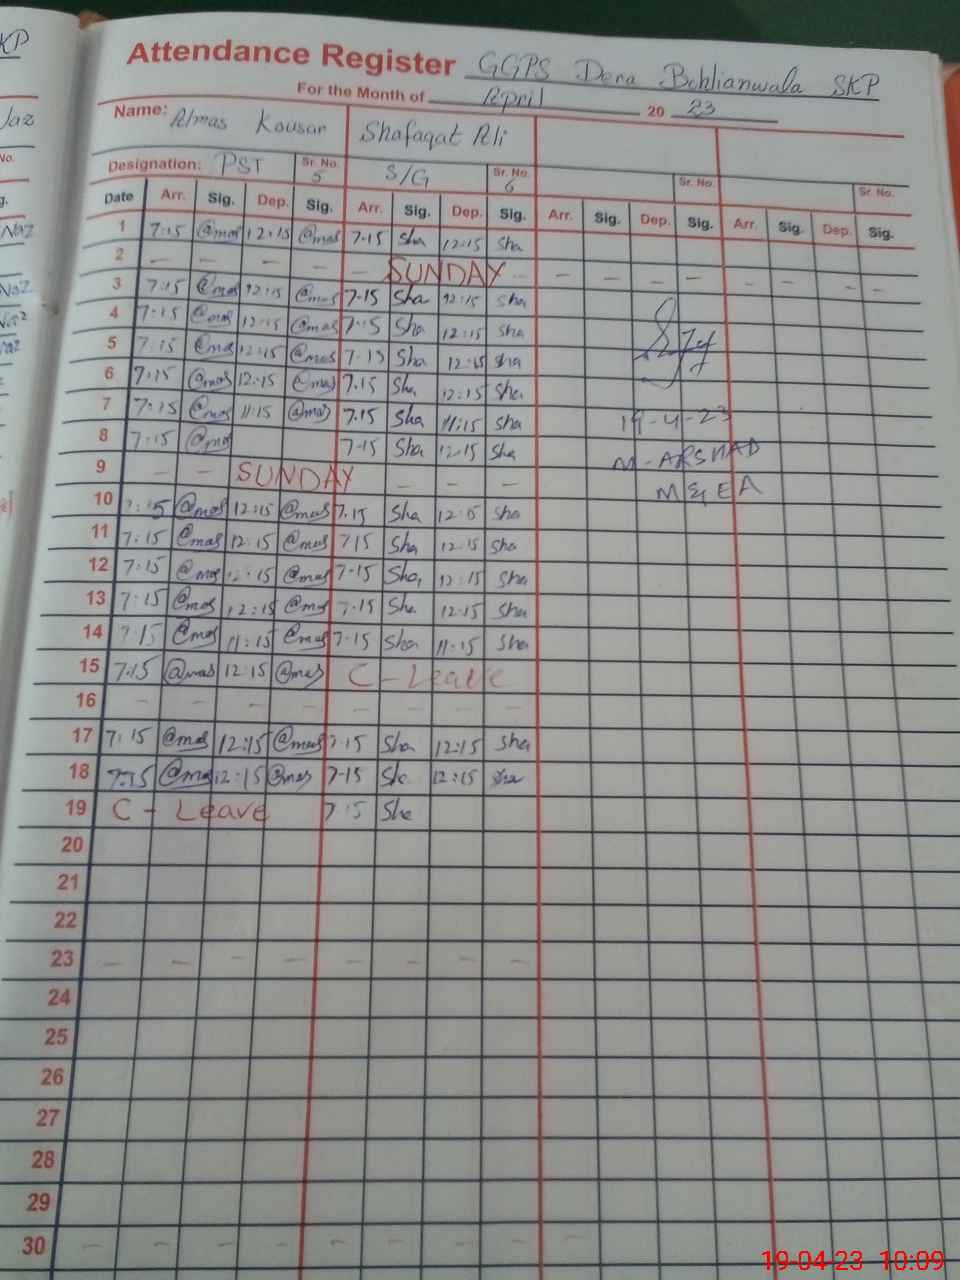 Attendance Register GGPS Dera Bohlianwala SKP
For the Month of April 20 23
Name: Almas Kousar Shafaqat Ali
Designation: PST Sr. No. 5 S/G Sr. No. 6 Sr. No. Sr. No.
Date Arr. Sig. Dep. Sig. Arr. Sig. Dep. Sig. Arr. Sig. Dep. Sig. Arr. Sig. Dep. Sig.
1 7:15 @mas 12:15 @mas 7-15 Sha 12:15 Sha
2 — — — — — SUNDAY — — — — — — — —
3 7:15 @mas 12:15 @mas 7-15 Sha 12:15 Sha
4 7:15 @mas 12:15 @mas Sha 12:15 Sha
5 7:15 @mas 12:15 @mas 7-15 Sha 12:15 Sha
6 7:15 @mas 12:15 @mas 7.15 Sha 12:15 Sha
7 7:15 @mas 11:15 @mas 7.15 Sha 11:15 Sha
19-4-23
8 7:15 @mas 7-15 Sha 12-15 Sha
M-ARSHAD
9 — — SUNDAY — — — —
M&EA
10 @mas 12:15 @mas 7.15 Sha Sha
11 7:15 @mas 12:15 @mas 715 Sha 12:15 Sha
12 7:15 @mas 12:15 @mas 7-15 Sha 12:15 Sha
13 7:15 @mas 12:15 @mas 7-15 Sha 12-15 Sha
14 7:15 @mas 11:15 @mas 7-15 Sha 11-15 Sha
15 7:15 @mas 12:15 @mas C - Leave
16 — — — — — — — —
17 7:15 @mas 12:15 @mas 7:15 Sha 12:15 Sha
18 7:15 @mas 12:15 @mas 7-15 Sha 12:15 Sha
19 C - Leave 7:15 Sha
20
21
22
23 — — — — — — — —
24
25
26
27
28
29
30 — — — — — — — —
19-04-23 10:09